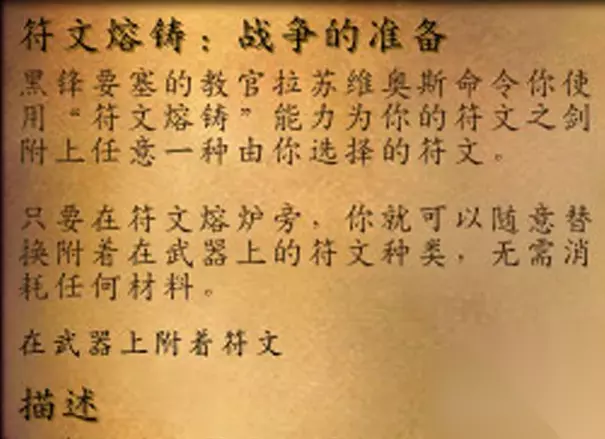 符文熔铸：战争的准备
黑锋要塞的教官拉苏维奥斯命令你使
用“符文熔铸”能力为你的符文之剑
附上任意一种由你选择的符文。
只要在符文熔炉旁，你就可以随意替
换附着在武器上的符文种类，无需消
耗任何材料。
在武器上附着符文
描述